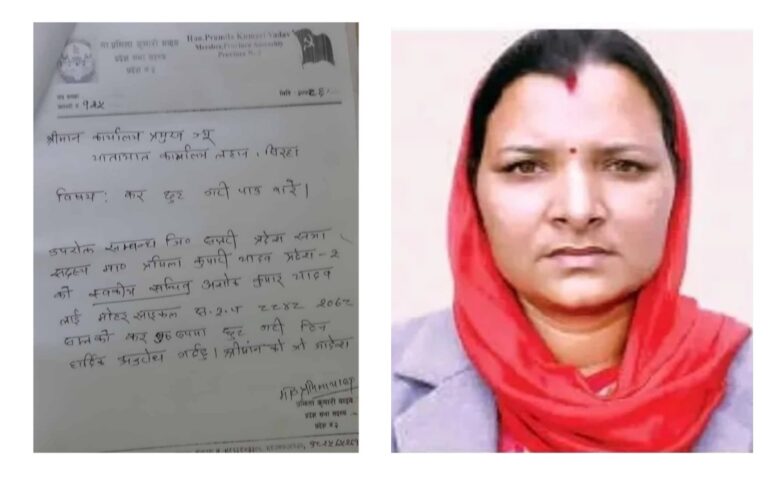 मा.प्रमिला कुमारी यादव
प्रदेश सभा सदस्य
प्रदेश नं. २
Hon. Pramila Kumari Yadav
Member, Province Assembly
Province No. 2
पत्र संख्या
चलानी नं १२५
मिति
श्रीमान कार्यालय प्रमुख ज्यू
यातायात कार्यालय लहान, सिरहा
विषय: कर छुट गरी पाउ बारे।
उपरोक्त सम्बन्धमा प्रदेश सभा
सदस्य मा० प्रमिला कुमारी यादव प्रदेश-२
को स्वकीय सचिव अशोक कुमार यादव
लाई मोटर साइकल स.२.प ८८४८
कर छुट गरी दिन
हार्दिक अनुरोध गर्दछु। श्रीमानको जो आदेश
प्रमिला कुमारी यादव
प्रदेश सभा सदस्य
प्रदेश नं. २